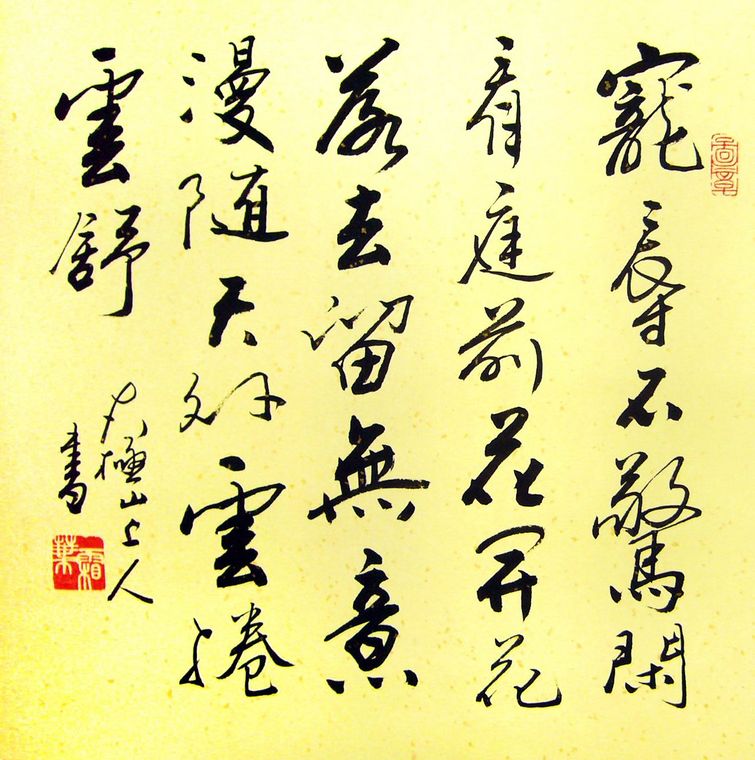 寵辱不驚閑
看庭前花開花
落去留無意
漫随天外雲捲
雲舒
太極山上人
書